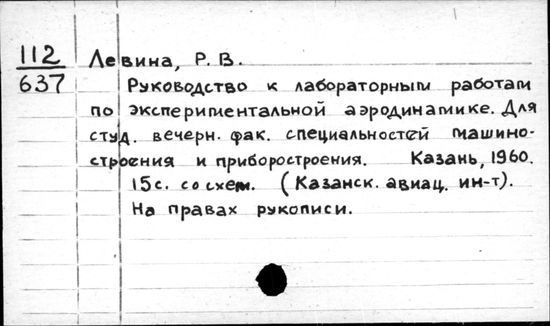 112 Левина, Р. В.
637 Руководство к лабораторным работам
по экспериментальной аэродинамике. Для
студ. вечерн. фак. специальностей машино-
строения и приборостроения. Казань, 1960.
15 с. со схем. (Казанск. авиац. ин-т).
На правах рукописи.